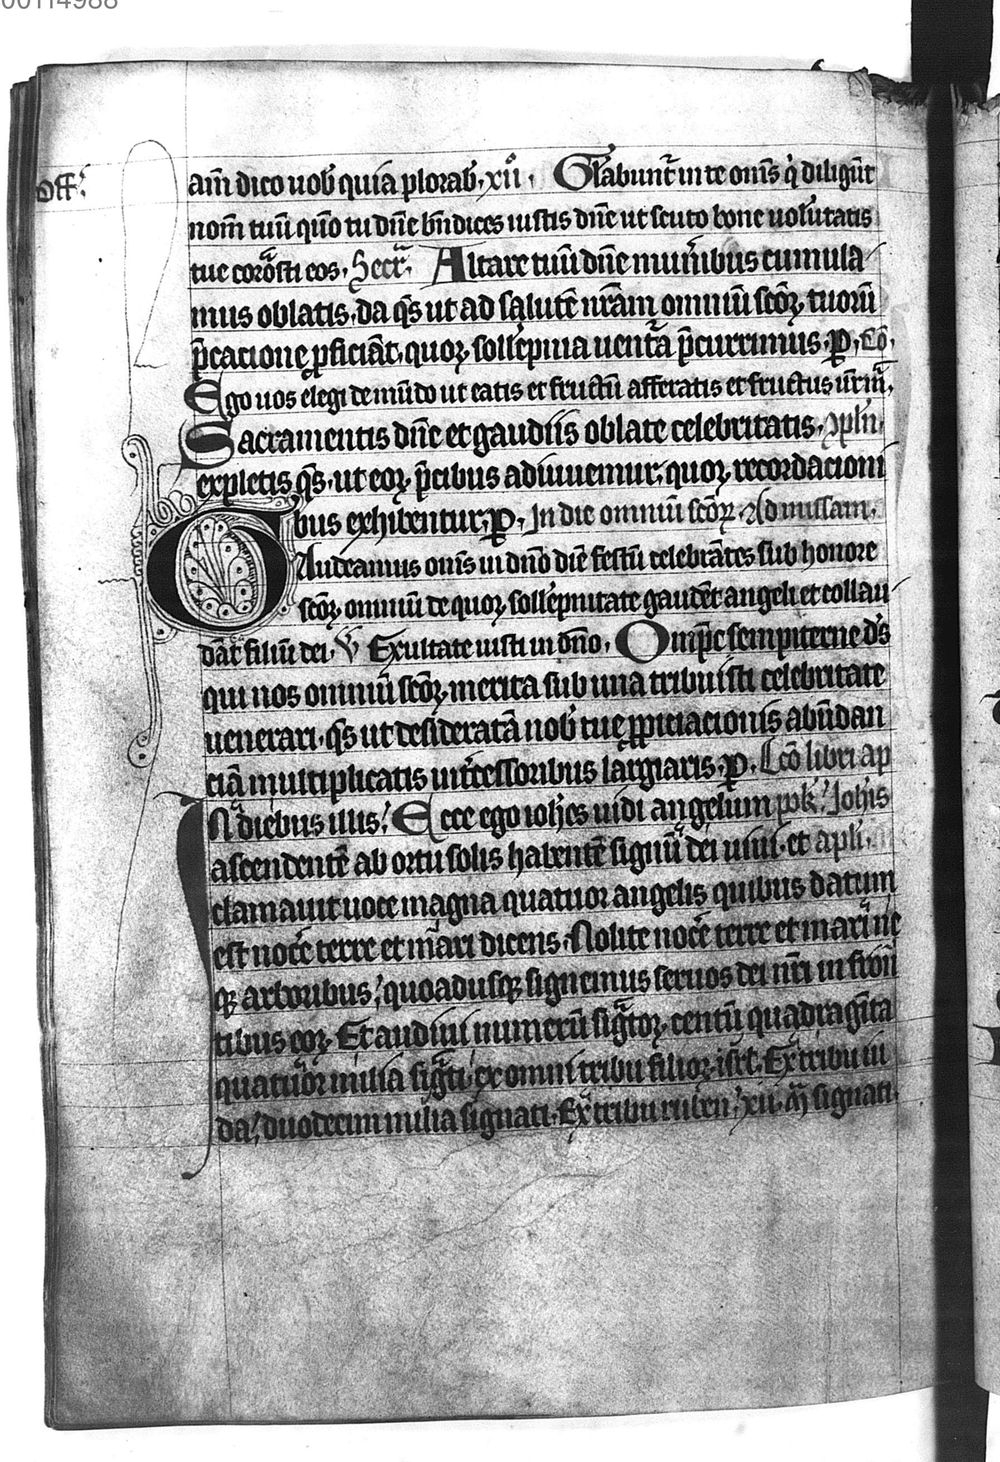 00114988
Off̄.
am̄ dico uob̄ quia plorab̄. xii. Gl̄abunt̄ in te om̄s q̄ diligūt
nom̄ tuū qm̄o tu dn̄e bn̄dices iustis dn̄e ut scuto bone uolūtatis
tue coronāsti eos. Secr̄. Altare tuū dn̄e munīibus cumula
mus oblatis. da qs̄ ut ad salutē nr̄am omniū scōꝝ tuorū
p̄catione ꝓficiāt. quoꝝ sollēpnia uentā p̄currimus. P. Cō.
Ego uos elegi de mūdo ut eatis et fructū afferatis et fructus ur̄ m̄.
Sacramentis dn̄e et gaudiis oblate celebritatis. Cpl̄n.
expletis qs̄. ut eoꝝ p̄cibus adiuuemur; quoꝝ recordacioni
bus exhibentur. P. In die omniū scōꝝ. Ad missam.
GAudeamus om̄s in dn̄o diē festū celebrātes sub honore
scōꝝ omniū de quoꝝ sollēpnitate gaudēt angeli et collau
dāt filiū dei. V̄ Exultate iusti in dn̄o. Omp̄c sempiterne ds̄
qui nos omniū scōꝝ merita sub una tribuisti celebritate
uenerari. qs̄ ut desideratā nob̄ tue ꝓpiciacionis abūdan
ciā multiplicatis intēssoribus largiaris. P. Lc̄o libri ap
IN diebus illis. Ecce ego ioh̄es uidi angelum pok̄. Joh̄is
ascendentē ab ortu solis habentē signū dei uiui. et apl̄i.
clamauit uoce magna quatuor angelis quibus datum
est nocē terre et mari dicens. Nolite nocē terre et mari ne
qꝫ arboribus. quoadusqꝫ signemus seruos dei nr̄i in fron
tibus eoꝝ. Et audiui numerū sigtōꝝ. centū quadragīta
quatuor milia sigti ex omni tribu filioꝝ isrl̄. Ex tribu iu
da. duodecim milia signati. Ex tribu ruben. xii. m̄ signati.